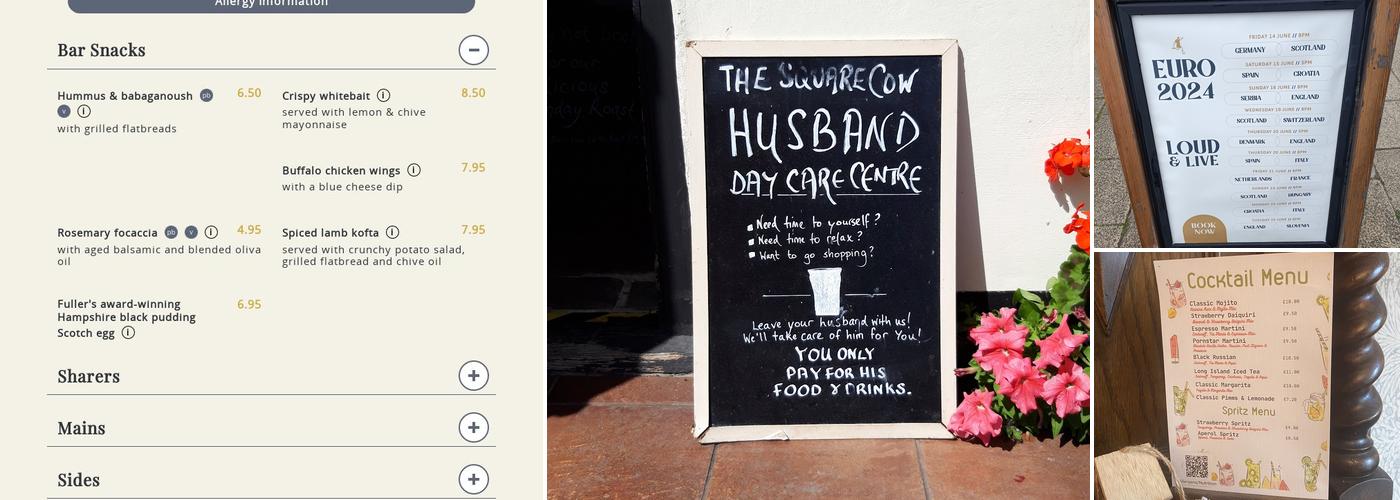 Allergy Information
Bar Snacks
Hummus & babaganoush pb
v i
6.50
with grilled flatbreads
Crispy whitebait i
8.50
served with lemon & chive
mayonnaise
Buffalo chicken wings i
7.95
with a blue cheese dip
Rosemary focaccia pb v i
4.95
with aged balsamic and blended oliva
oil
Spiced lamb kofta i
7.95
served with crunchy potato salad,
grilled flatbread and chive oil
Fuller's award-winning
6.95
Hampshire black pudding
Scotch egg i
Sharers
Mains
Sides
THE SQUARE COW
HUSBAND
DAY CARE CENTRE
Need time to yourself?
Need time to relax?
Want to go shopping?
Leave your husband with us!
We'll take care of him for You!
YOU ONLY
PAY FOR HIS
FOOD & DRINKS.
EURO
2024
LOUD
& LIVE
BOOK
NOW
FRIDAY 14 JUNE // 8PM
GERMANY SCOTLAND
SATURDAY 15 JUNE // 5PM
SPAIN CROATIA
SUNDAY 16 JUNE // 8PM
SERBIA ENGLAND
WEDNESDAY 19 JUNE // 8PM
SCOTLAND SWITZERLAND
THURSDAY 20 JUNE // 5PM
DENMARK ENGLAND
THURSDAY 20 JUNE // 8PM
SPAIN ITALY
FRIDAY 21 JUNE // 8PM
NETHERLANDS FRANCE
SCOTLAND HUNGARY
CROATIA ITALY
ENGLAND SLOVENIA
Cocktail Menu
Classic Mojito £10.00
Strawberry Daiquiri £9.50
Espresso Martini £9.50
Pornstar Martini £9.50
Black Russian £10.50
Long Island Iced Tea £11.00
Classic Margarita £10.00
Classic Pimms & Lemonade £7.20
Spritz Menu
Strawberry Spritz
Aperol Spritz